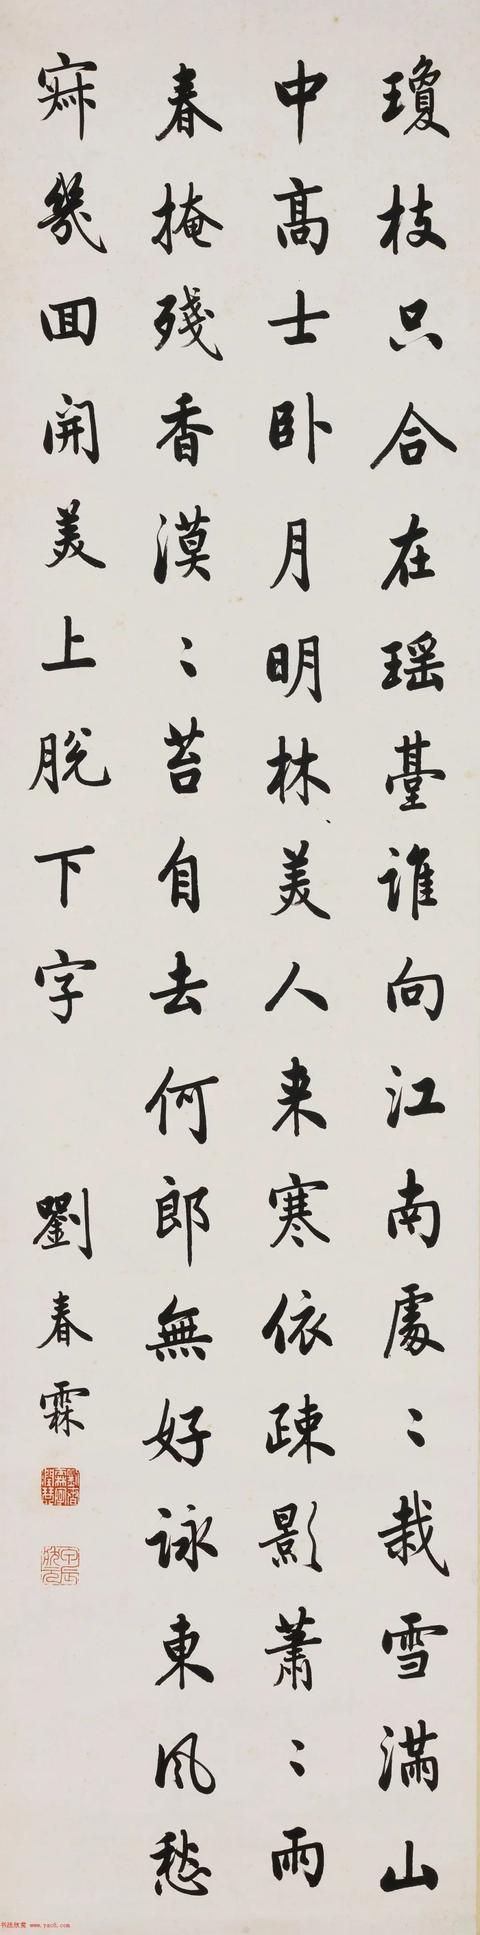 瓊枝只合在瑶臺誰向江南處〻栽雪滿山
中高士卧月明林美人来寒依疎影蕭〻雨
春掩殘香漠〻苔自去何郎無好詠東風愁
寂幾囬開美上脱下字
劉春霖
甲辰狀元
书法欣赏 www.yac8.com